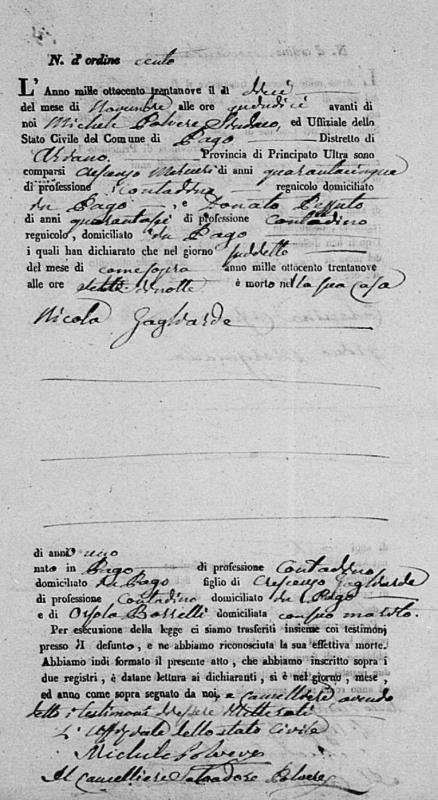 N. d'ordine cento
L'Anno mille ottocento trentanove il di dieci
del mese di Novembre alle ore quindici avanti di
noi Michele Polvere Sindaco, ed Uffiziale dello
Stato Civile del Comune di Pago Distretto di
Ariano. Provincia di Principato Ultra sono
comparsi Crescenzo di anni quarantacinque
di professione Contadino regnicolo domiciliato
in Pago, e Donato
di anni quarantasei di professione Contadino
regnicolo, domiciliato in Pago
i quali han dichiarato che nel giorno suddetto
del mese di come sopra anno mille ottocento trentanove
alle ore sette di notte è morto nella sua casa
Nicola Gagliarde
di anni uno
nato in Pago di professione Contadino
domiciliato in Pago figlio di Crescenzo Gagliarde
di professione Contadino domiciliato in Pago
e di Orsola Borrelli domiciliata marito.
Per esecuzione della legge ci siamo trasferiti insieme coi testimonj
presso Il defunto, e ne abbiamo riconosciuta la sua effettiva morte.
Abbiamo indi formato il presente atto, che abbiamo inscritto sopra i
due registri, è datane lettura ai dichiaranti, si è nel giorno, mese,
ed anno come sopra segnato da noi, e Cancelliere avendo
detto i testimoni d'essere illetterati
L'Uffiziale dello stato Civile
Michele Polvere
Il Cancelliere Salvadore Polvere